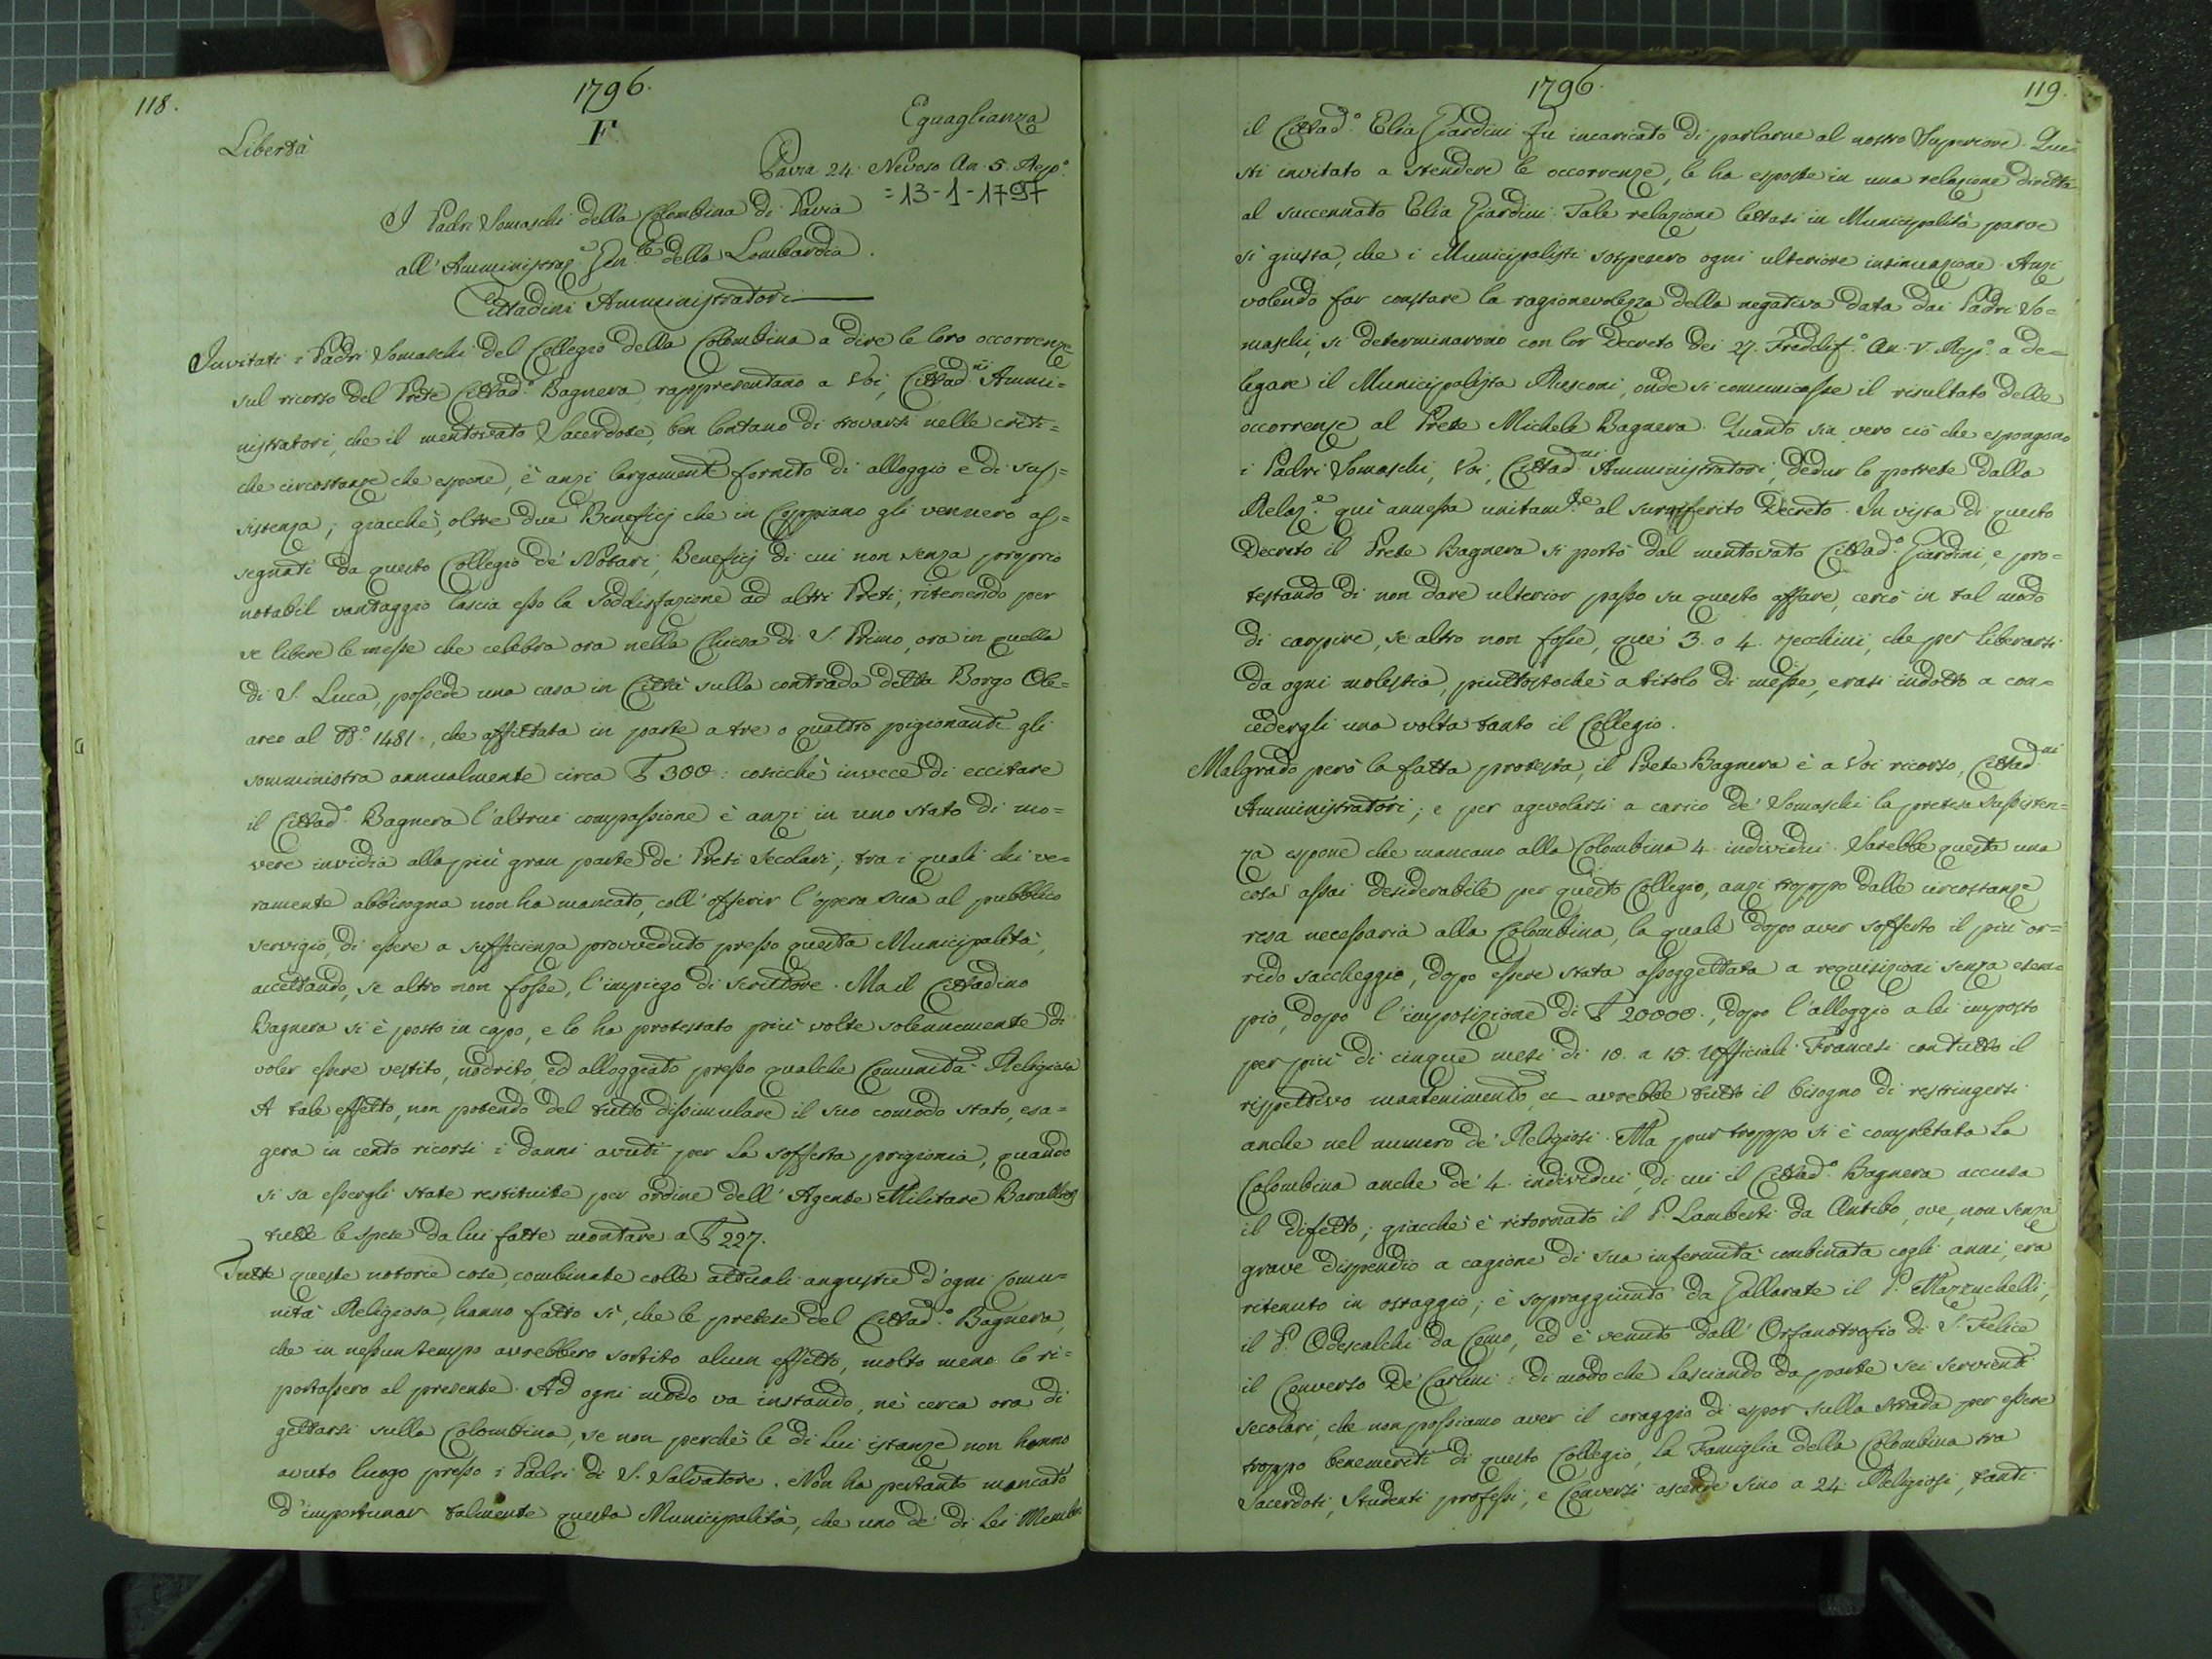 118.
1796.
F
Libertà
Eguaglianza
Pavia 24. Nevoso An. 5. Rep.°
=13-1-1797
I Padri Somaschi della Colombina di Pavia
all'Amministraz.e Gen.le della Lombardia.
Cittadini Amministratori
Invitati i Padri Somaschi del Collegio della Colombina a dire le loro occorrenze
sul ricorso del Prete Cittad.° Bagnera, rappresentano a Voi, Cittad.ni Ammi=
nistratori, che il mentovato Sacerdote, ben lontano di trovarsi nelle criti=
che circostanze che espone, è anzi largamente fornito di alloggio e di sus=
sistenza; giacchè, oltre due Beneficj che in Coppiano gli vennero as=
segnati da questo Collegio de' Notari, Beneficj di cui non senza proprio
notabil vantaggio lascia esso la Soddisfazione ad altri Preti, ritenendo per
se libere le messe che celebra ora nella Chiesa di S. Primo, ora in quella
di S. Luca, possede una casa in Città sulla contrada detta Borgo Ole=
areo al N.° 1481., che affittata in parte a tre o quattro pigionanti gli
somministra annualmente circa £ 300: cosicchè invece di eccitare
il Cittad.° Bagnera l'altrui compassione è anzi in uno stato di mo=
vere invidia alla più gran parte de' Preti Secolari; tra i quali chi ve=
ramente abbisogna non ha mancato, coll'offerir l'opera sua al pubblico
servigio, di essere a sufficienza provveduto presso questa Municipalità,
accettando, se altro non fosse, l'impiego di scrittore. Ma il Cittadino
Bagnera si è posto in capo, e lo ha protestato più volte solennemente di
voler essere vestito, nodrito, ed alloggiato presso qualche Comunità Religiosa
A tale effetto, non potendo del tutto dissimulare il suo comodo stato, esa=
gera in cento ricorsi i danni avuti per la sofferta prigionia, quando
si sa essergli state restituite per ordine dell'Agente Militare
tutte le spese da lui fatte montare a £ 227.
Tutte queste notorie cose, combinate colle attuali angustie d'ogni Comu=
nità Religiosa, hanno fatto sì, che le pretese del Cittad.° Bagnera,
che in nessun tempo avrebbero sortito alcun effetto, molto meno lo ri=
portassero al presente. Ad ogni modo va instando, nè cerca ora di
gettarsi sulla Colombina, se non perchè le di Lui istanze non hanno
avuto luogo presso i Padri di S. Salvatore. Non ha pertanto mancato
d'importunar talmente questa Municipalità, che uno de' di Lei Membri
1796.
119.
il Cittad.° Elia Giardini fu incaricato di parlarne al nostro Superiore. Que=
sti invitato a stendere le occorrenze, le ha esposte in una relazione diretta
al succennato Elia Giardini. Tale relazione lettasi in Municipalità parve
sì giusta, che i Municipalisti sospesero ogni ulteriore insinuazione. Anzi
volendo far constare la ragionevolezza della negativa data dai Padri So=
maschi, si determinarono con lor Decreto dei 27. Freddif.° An. V. Rep.° a de=
legare il Municipalista Rusconi, onde si comunicasse il risultato delle
occorrenze al Prete Michele Bagnera. Quanto sia vero ciò che espongono
i Padri Somaschi, Voi, Cittad.ni Amministratori, dedur lo potrete dalla
Relaz.e quì annessa unitam.te al surriferito Decreto. In vista di questo
Decreto il Prete Bagnera si portò dal mentovato Cittad.° Giardini, e pro=
testando di non dare ulterior passo su questo affare, cercò in tal modo
di carpire, se altro non fosse, que' 3. o 4. zecchini, che per liberarsi
da ogni molestia, piuttostochè a titolo di messe, erasi indotto a con=
cedergli una volta tanto il Collegio.
Malgrado però la fatta protesta, il Prete Bagnera è a Voi ricorso, Cittad.ni
Amministratori; e per agevolarsi a carico de' Somaschi la pretesa sussisten=
za espone che mancano alla Colombina 4. individui. Sarebbe questa una
cosa assai desiderabile per questo Collegio, anzi troppo dalle circostanze
resa necessaria alla Colombina, la quale dopo aver sofferto il più or=
rido saccheggio, dopo essere stata assoggettata a requisizioni senza esem=
pio, dopo l'imposizione di £ 20000., dopo l'alloggio a lei imposto
per più di cinque mesi di 10. a 15. Ufficiali Francesi con tutto il
rispettivo mantenimento ec. avrebbe tutto il bisogno di restringersi
anche nel numero de' Religiosi. Ma pur troppo si è completata la
Colombina anche de' 4. individui, di cui il Cittad.° Bagnera accusa
il difetto; giacchè è ritornato il P. Lamberti da Antibo, ove, non senza
grave dispendio a cagione di sua infermità combinata cogli anni, era
ritenuto in ostaggio; è sopraggiunto da Gallarate il P. Mazzuchelli,
il P. Odescalchi da Como, ed è venuto dall'Orfanotrofio di S. Felice
il Converso De' Carlini: di modo che lasciando da parte sei servienti
secolari, che non possiamo aver il coraggio di espor sulla strada per essere
troppo benemeriti di questo Collegio, la Famiglia della Colombina tra
Sacerdoti, Studenti professi, e Conversi ascende sino a 24. Religiosi, tanti